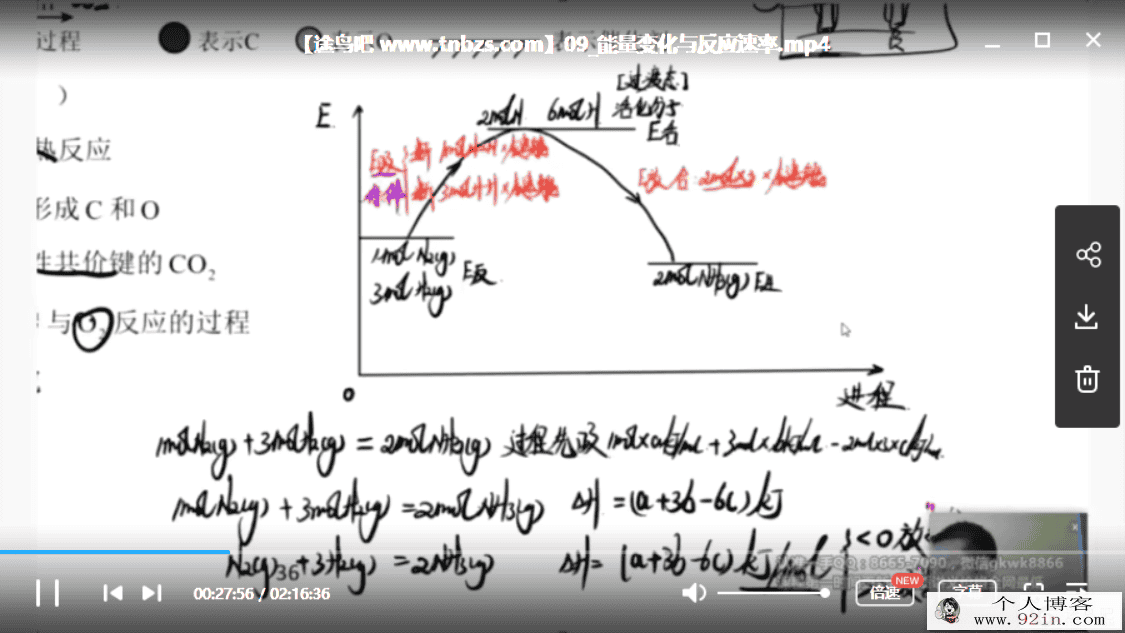 过程 表示C
【途鸟吧 www.tnbzs.com】09_能量变化与反应速率.mp4
)
热反应
形成 C 和 O
性共价键的 CO₂
与 O₂ 反应的过程
E
[过渡态]
活化分子
2molN 6molH
E吸
断 1molN≡N×键能
断 3molH-H×键能
E放 合: 2mol×3×键能
1molN₂(g)
3molH₂(g)
E反
2molNH₃(g)
O
进程
1molN₂(g)+3molH₂(g)=2molNH₃(g) 过程先吸 1mol×akJ/mol+3mol×bkJ/mol-2mol×3×ckJ/mol
1molN₂(g)+3molH₂(g)=2molNH₃(g) ΔH=(a+3b-6c)kJ
N₂(g)+3H₂(g)=2NH₃(g) ΔH=(a+3b-6c)kJ/mol <0 放
36
QQ：8665-7090，微信gkwk8866
00:27:56 / 02:16:36
倍速
NEW
字幕
个人博客
www.92in.com